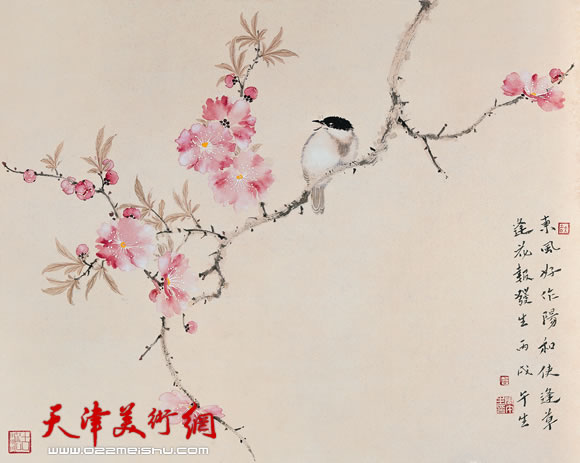 東風好作陽和使逢草
逢花報發生丙戌午生
天津美術網
www.022meishu.com